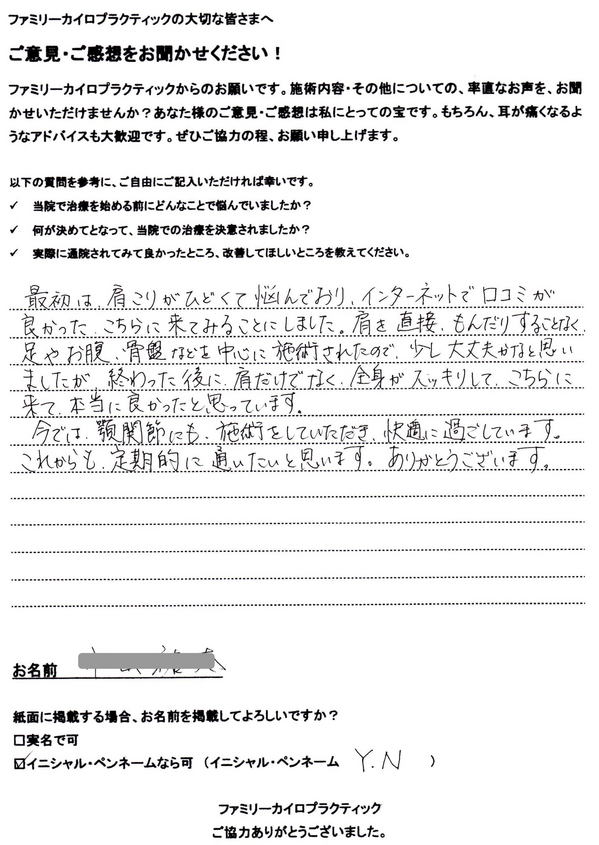 ファミリーカイロプラクティックの大切な皆さまへ
ご意見・ご感想をお聞かせください！
ファミリーカイロプラクティックからのお願いです。施術内容・その他についての、率直なお声を、お聞
かせいただけませんか？あなた様のご意見・ご感想は私にとっての宝です。もちろん、耳が痛くなるよ
うなアドバイスも大歓迎です。ぜひご協力の程、お願い申し上げます。
以下の質問を参考に、ご自由にご記入いただければ幸いです。
✓ 当院で治療を始める前にどんなことで悩んでいましたか？
✓ 何が決めてとなって、当院での治療を決意されましたか？
✓ 実際に通院されてみて良かったところ、改善してほしいところを教えてください。
最初は、肩こりがひどくて悩んでおり、インターネットで口コミが
良かった、こちらに来てみることにしました。肩を直接、もんだりすることなく、
足やお腹、骨盤などを中心に施術されたので、少し大丈夫かなと思い
ましたが、終わった後に、肩だけでなく、全身がスッキリして、こちらに
来て、本当に良かったと思っています。
今では、顎関節にも、施術をしていただき、快適に過ごしています。
これからも、定期的に通いたいと思います。ありがとうございます。
お名前
紙面に掲載する場合、お名前を掲載してよろしいですか？
□実名で可
☑イニシャル・ペンネームなら可 （イニシャル・ペンネーム Y.N ）
ファミリーカイロプラクティック
ご協力ありがとうございました。